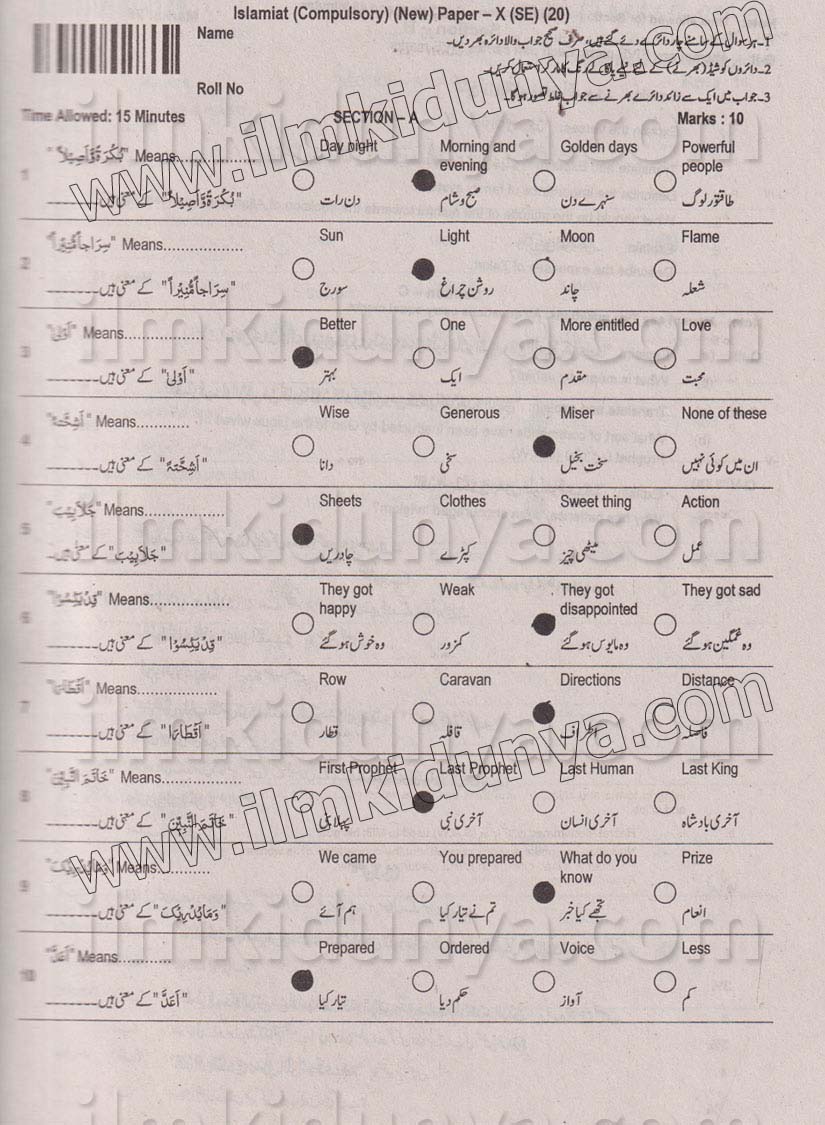 Islamiat (Compulsory) (New) Paper – X (SE) (20)
Name
1- ہر سوال کے سامنے چار دائرے دئے گئے ہیں، صرف صحیح جواب والا دائرہ بھر دیں۔
2- دائروں کو شیڈ (بھرنے) کے لئے نیلے یا کالے رنگ کا مارکر استعمال کریں۔
Roll No
3- جواب میں ایک سے زائد دائرے بھرنے سے جواب غلط تصور ہوگا۔
Time Allowed: 15 Minutes SECTION – A Marks : 10
1 "بُكْرَةً وَّاَصِيْلاً" Means................ Day night Morning and evening Golden days Powerful people
"بُكْرَةً وَّاَصِيْلاً" کے معنی ہیں۔ دن رات صبح و شام سنہرے دن طاقتور لوگ
2 "سِرَاجاً مُّنِيْراً" Means.................. Sun Light Moon Flame
"سِرَاجاً مُّنِيْراً" کے معنی ہیں۔ سورج روشن چراغ چاند شعلہ
3 "اَوْلىٰ" Means.................. Better One More entitled Love
"اَوْلىٰ" کے معنی ہیں۔ بہتر ایک مقدم محبت
4 "اَشِحَّةً" Means.................. Wise Generous Miser None of these
"اَشِحَّةً" کے معنی ہیں۔ دانا سخی سخت بخیل ان میں کوئی نہیں
5 "جَلَابِيْبَ" Means.................. Sheets Clothes Sweet thing Action
"جَلَابِيْبَ" کے معنی ہیں۔ چادریں کپڑے میٹھی چیز عمل
6 "قَدْ يَئِسُوْا" Means.................. They got happy Weak They got disappointed They got sad
"قَدْ يَئِسُوْا" کے معنی ہیں۔ وہ خوش ہو گئے کمزور وہ مایوس ہو گئے وہ غمگین ہو گئے
7 Means.................. Row Caravan Directions Distance
"اَقْطَارِهَا" کے معنی ہیں۔ قطار قافلہ اطراف فاصلہ
8 "خَاتَمَ النَّبِيّٖنَ" Means.................. First Prophet Last Prophet Last Human Last King
"خَاتَمَ النَّبِيّٖنَ" کے معنی ہیں۔ پہلا نبی آخری نبی آخری انسان آخری بادشاہ
9 "وَمَا يُدْرِيْكَ" Means............ We came You prepared What do you know Prize
"وَمَا يُدْرِيْكَ" کے معنی ہیں۔ ہم آئے تم نے تیار کیا تجھے کیا خبر انعام
10 "اَعَدَّ" Means............ Prepared Ordered Voice Less
"اَعَدَّ" کے معنی ہیں۔ تیار کیا حکم دیا آواز کم
www.ilmkidunya.com
www.ilmkidunya.com
ilmkidunya.com
ilmkidunya.com
ilmkidunya.com
ilmkidunya.com
ilmkidunya.com
ilmkidunya.com
ilmkidunya.com